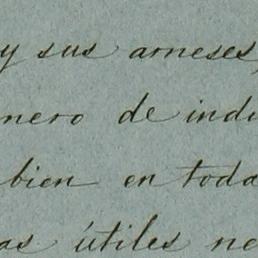 y sus arneses,
nero de indu
bien en toda
as útiles ne